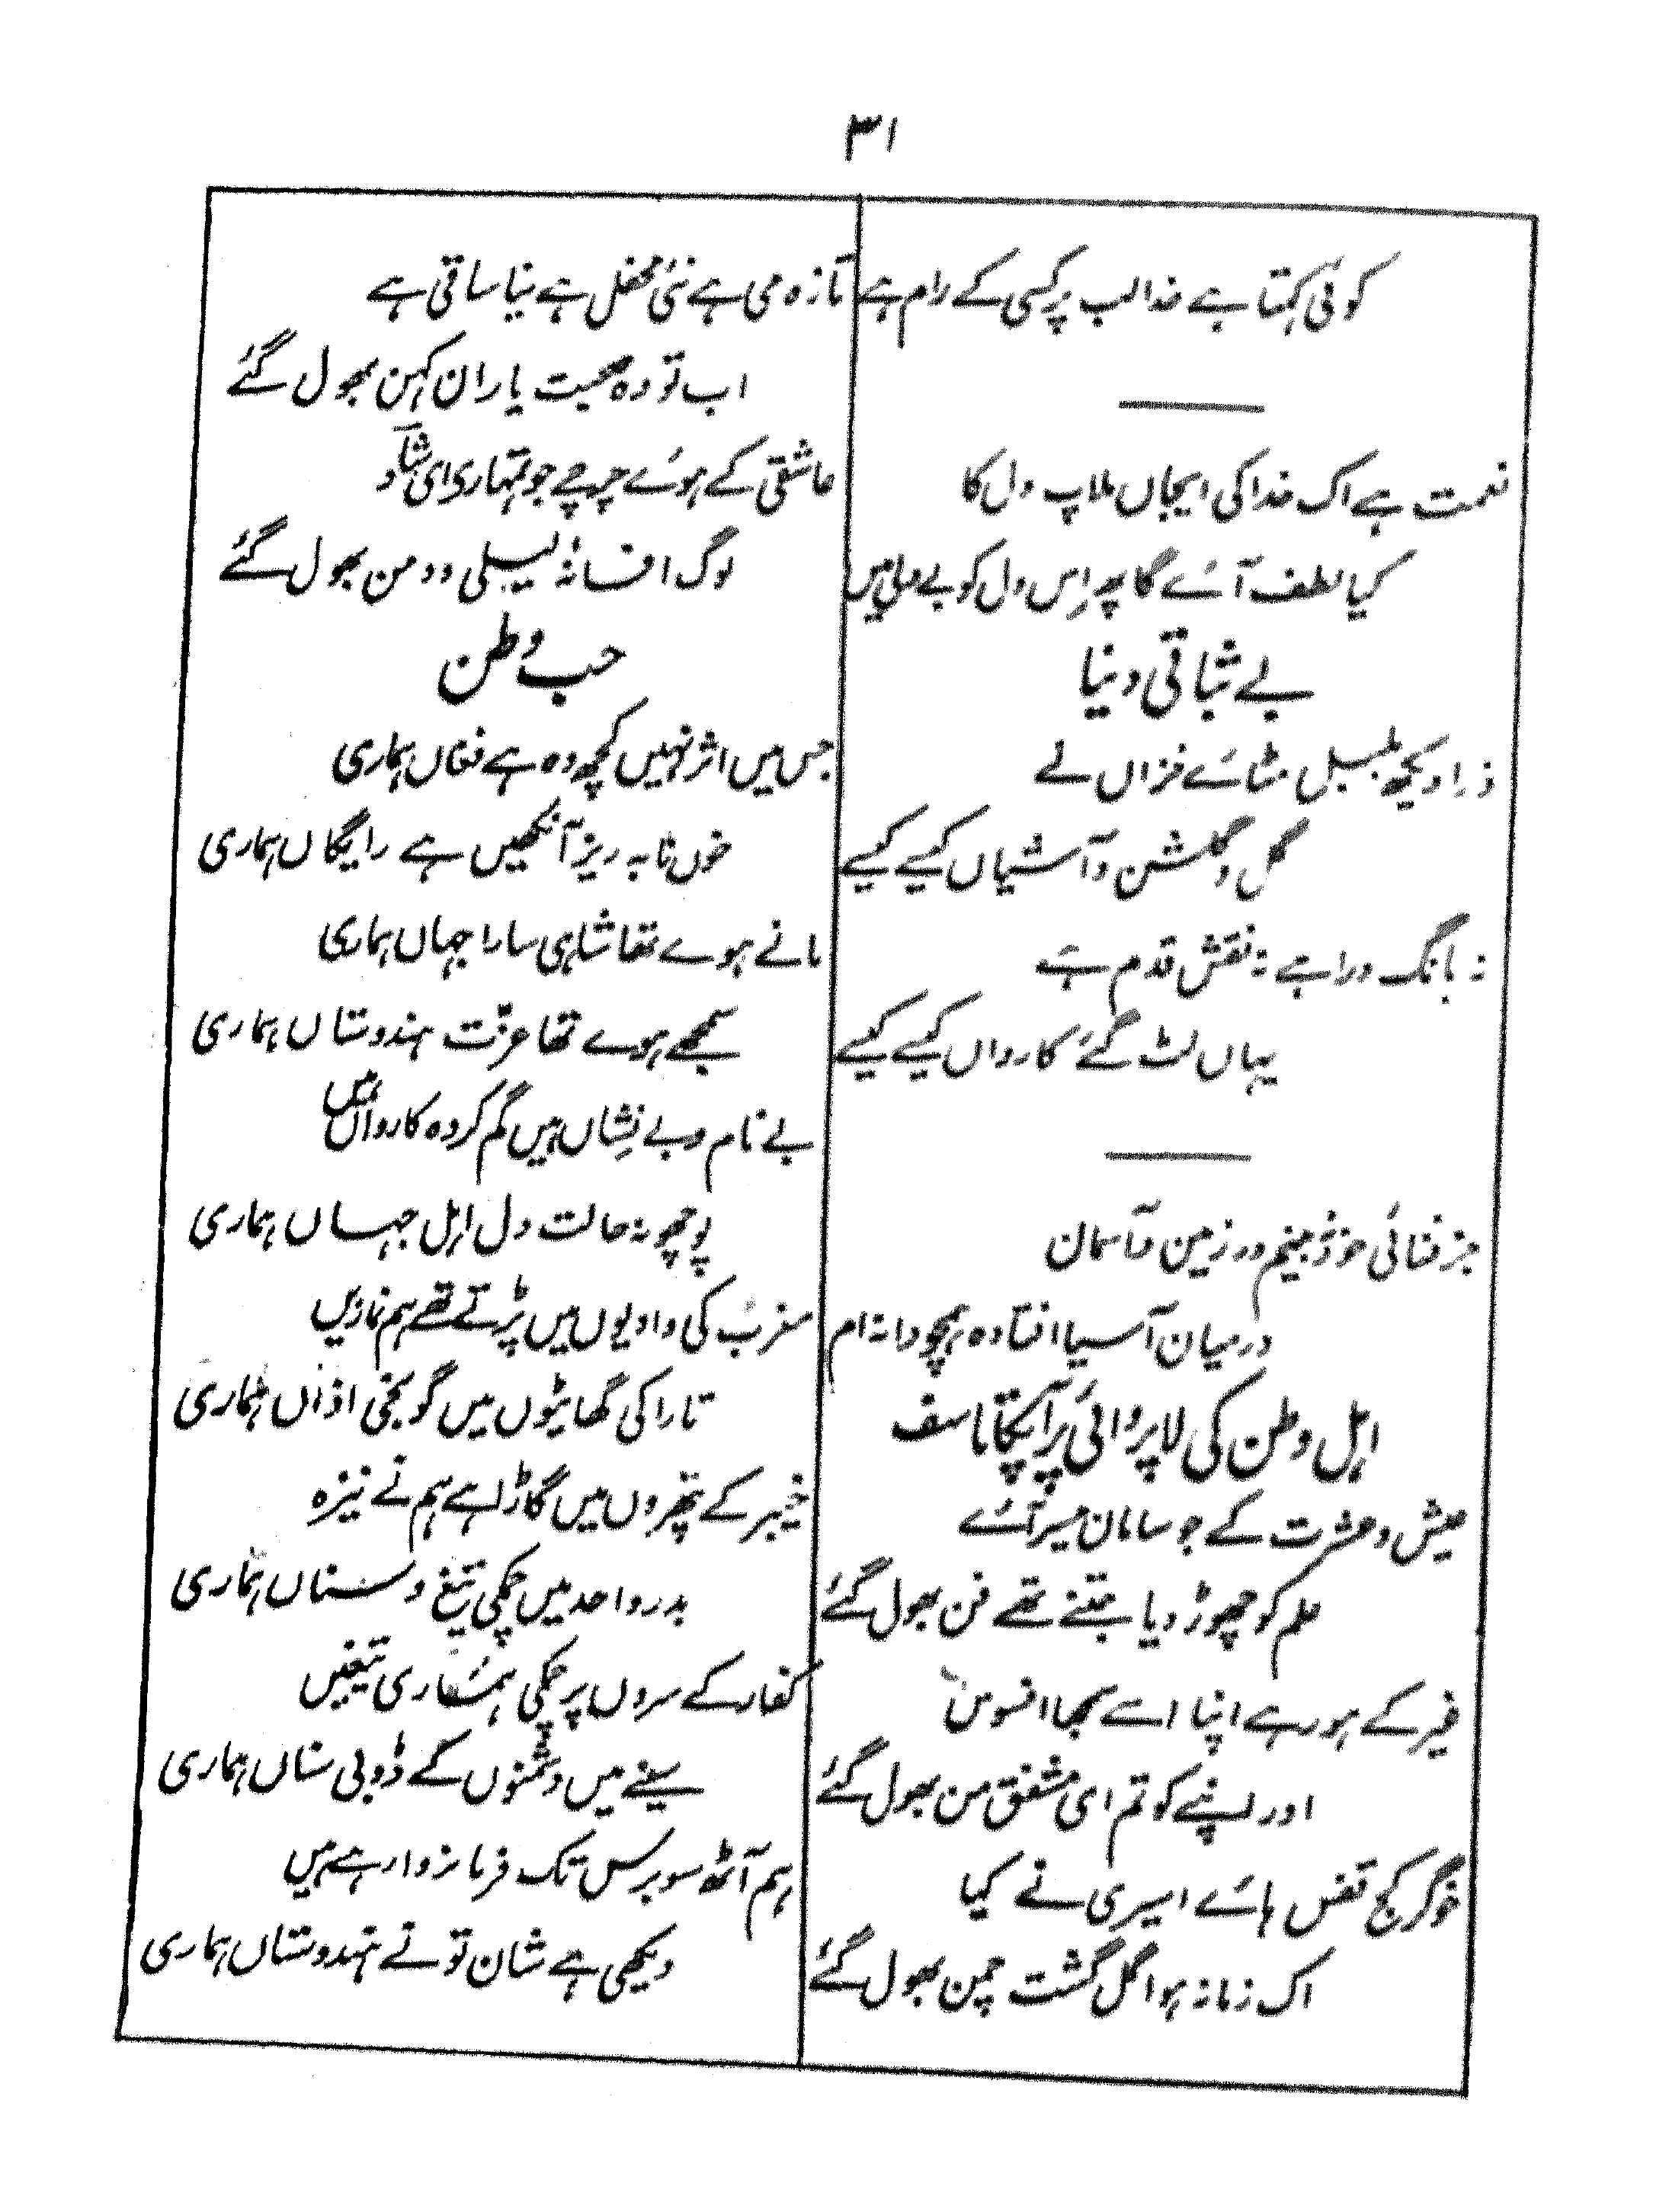 ۳۱
کوئی کہتا ہے خدا لب پر کسی کے رام ہے
نعمت ہے اک خدا کی ایجاں ملاپ دل کا
کیا لطف آئے گا پھر اِس دل کو بے دلی میں
بے ثباتی دنیا
ذرا دیکھ بلبل مٹائے خزاں نے
گل و گلشن و آشیاں کیسے کیسے
نہ بانگ درا ہے نہ نقش قدم ہے
یہاں لٹ گئے کارواں کیسے کیسے
جز فنائی خود نہ بینم در زمین و آسمان
درمیان آسیا افتادہ ہمچو دانہ ام
اہل وطن کی لا پروائی پر آپکا تاسف
عیش و عشرت کے جو سامان میسر آئے
علم کو چھوڑ دیا جتنے تھے فن بھول گئے
غیر کے ہو رہے اپنا اسے سمجھا افسوس
اور اپنے کو تم ای مشفق من بھول گئے
خوگر کنج قفس ہائے اسیری نے کیا
اک زمانہ ہوا گل گشت چمن بھول گئے
تازہ می ہے نئی محفل ہے نیا ساقی ہے
اب تو وہ صحبت یاران کہن بھول گئے
عاشقی کے ہوئے چرچے جو تمہاری ای شاد
لوگ افسانۂ لیلی و دمن بھول گئے
حب وطن
جس میں اثر نہیں کچھ وہ ہے فغاں ہماری
خوں نابہ ریز آنکھیں ہے رایگاں ہماری
مانے ہوے تھا شاہی سارا جہاں ہماری
سمجھے ہوے تھا عزّت ہندوستاں ہماری
بے نام و بے نِشاں ہیں گم کردہ کارواں ہیں
پوچھو نہ حالت دل اہل جہاں ہماری
مغرب کی وادیوں میں پڑتے تھے ہم نمازیں
تارا کی گھاٹیوں میں گونجی اذاں ہماری
خیبر کے پتھروں میں گاڑا ہے ہم نے نیزہ
بدر و احد میں چمکی تیغ و سناں ہماری
کفار کے سروں پر چمکی ہماری تیغیں
سینے میں دشمنوں کے ڈوبی سناں ہماری
ہم آٹھ سو برس تک فرمانروا رہے ہیں
دیکھی ہے شان تو نے ہندوستاں ہماری